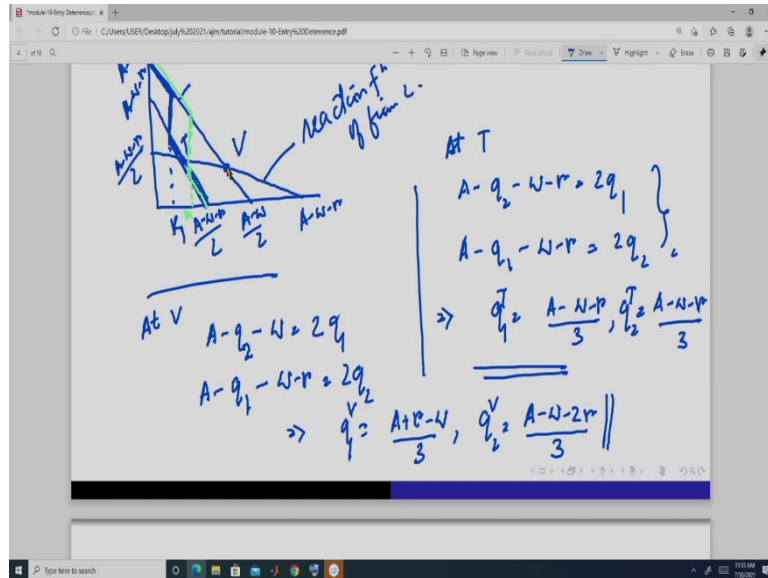 *module-10-Entry Deterrence.pdf
File | C:/Users/USER/Desktop/july%202021/ajm/tutorial/module-10-Entry%20Deterrence.pdf
4 of 18
Page view
Read aloud
Draw
Highlight
Erase
A-w-r
A-w-r
2
T
V
reaction fⁿ
of firm 2.
K₁
A-w-r
2
A-w
2
A-w-r
At T
A-q₂-w-r = 2q₁
A-q₁-w-r = 2q₂
⇒ q₁ᵀ = A-w-r
3
, q₂ᵀ = A-w-r
3
At V
A-q₂-w = 2q₁
A-q₁-w-r = 2q₂
⇒ q₁ⱽ = A+r-w
3
, q₂ⱽ = A-w-2r
3
Type here to search
11:55 AM
7/30/2021